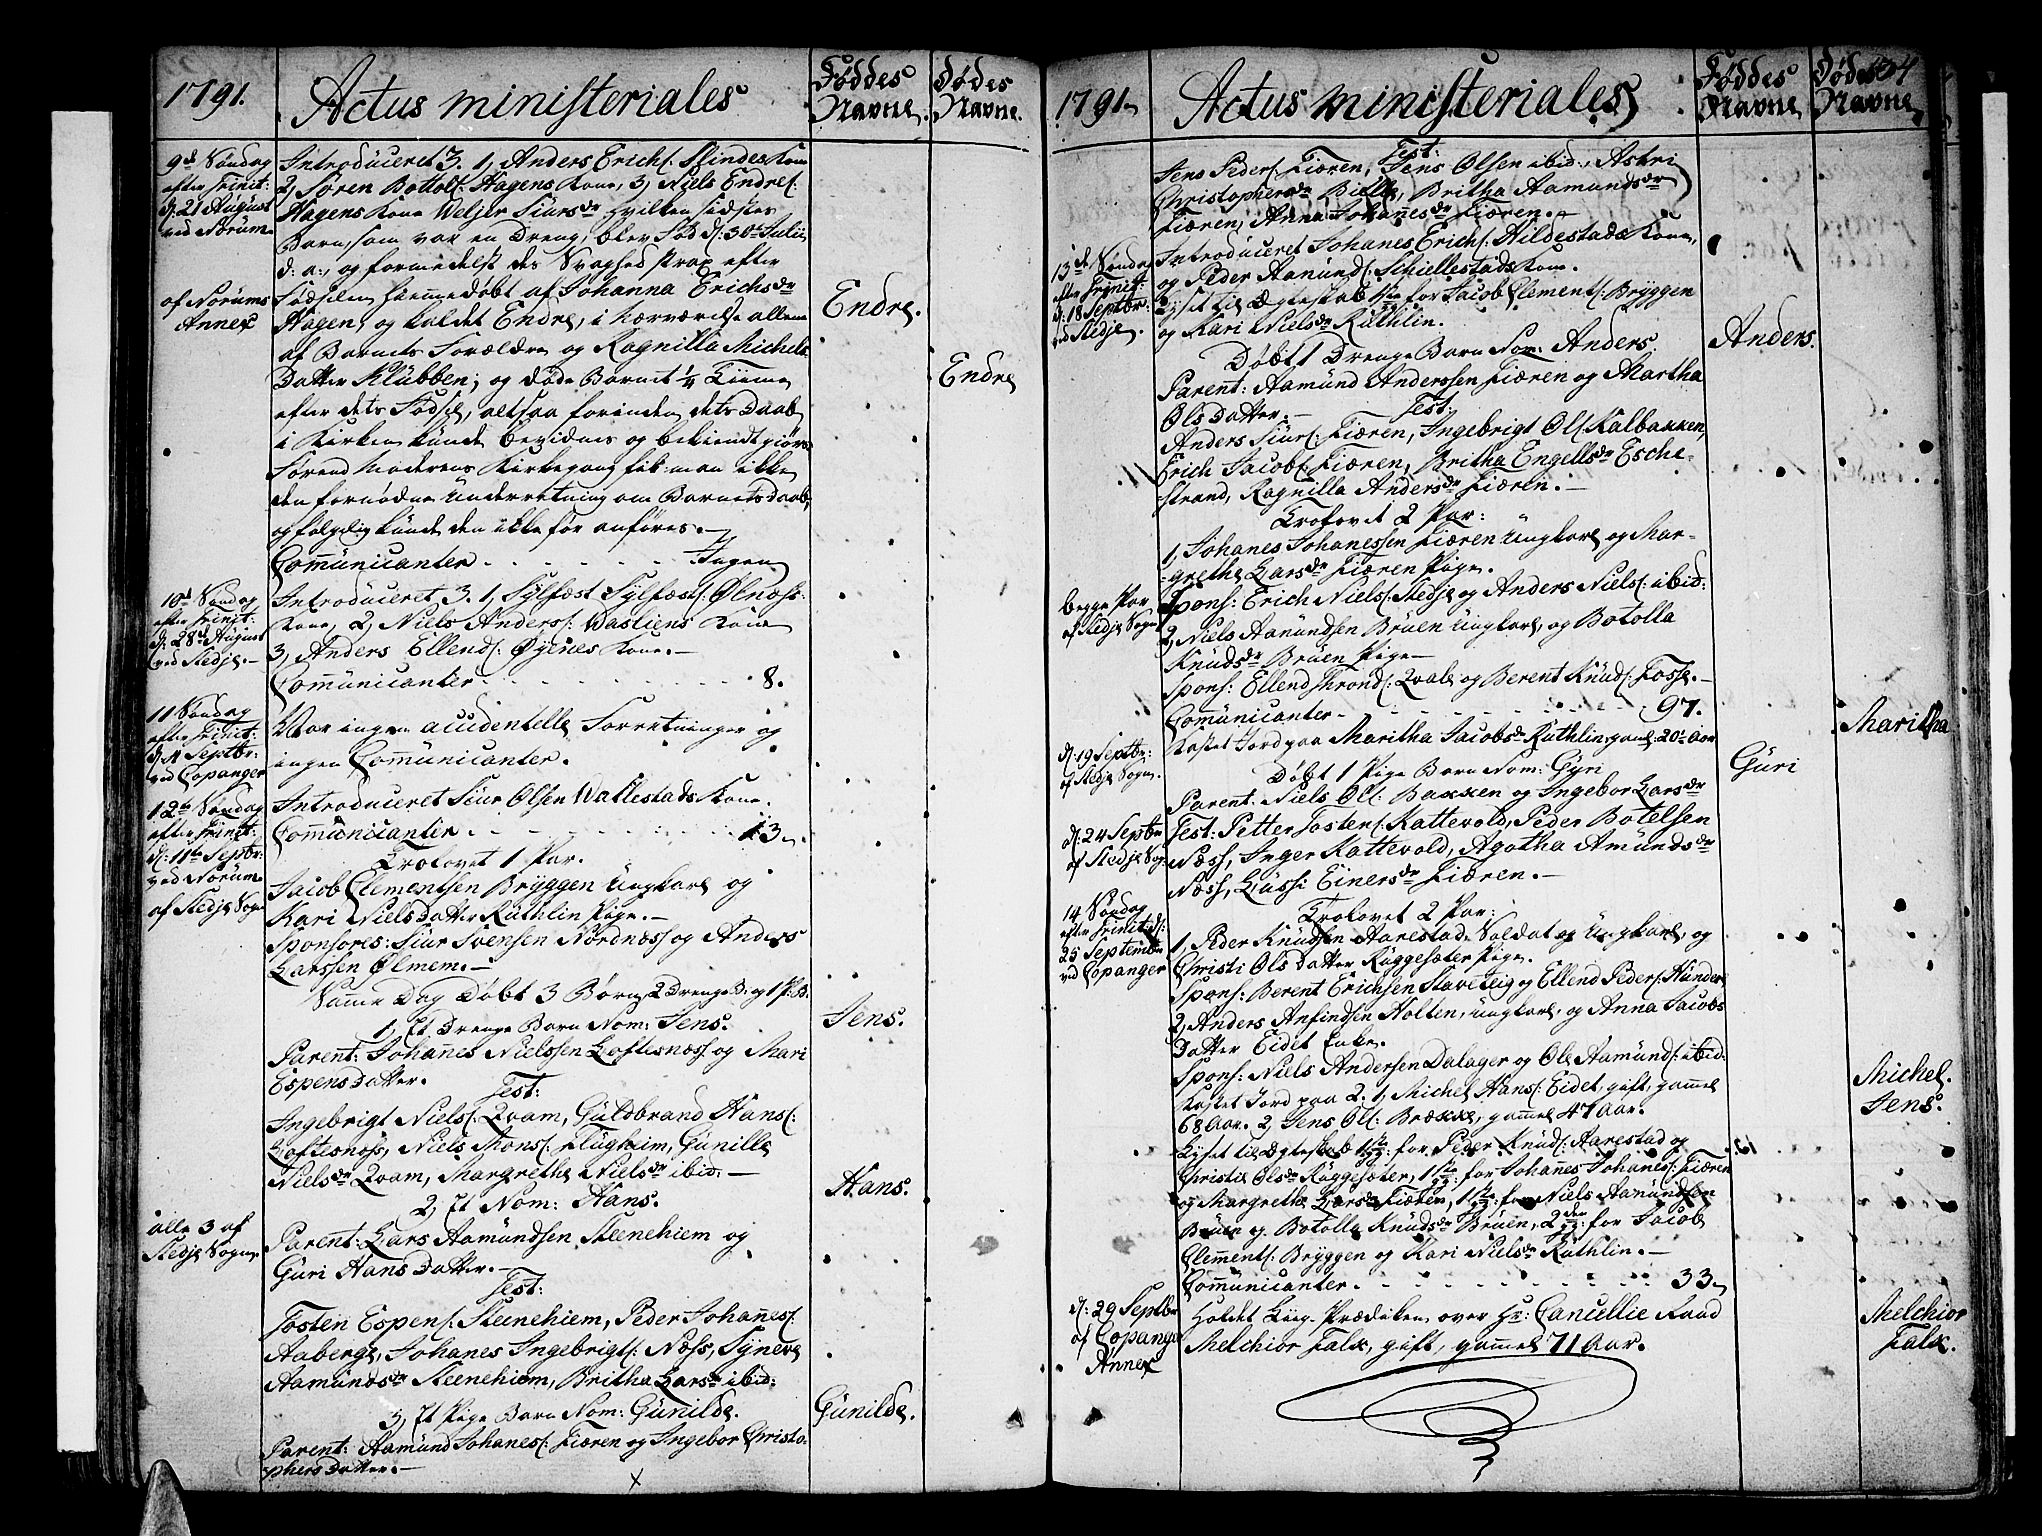 1791.
Actus ministeriales
Föddes Navne.
Dödes Navne.
9de Söndag
efter Trinit:
d: 21 August
ved Norum.
Introduceret 3. 1, Anders Erichs: Slindes Kone
2, Sören Bottolfs: Hagens Kone, 3, Niels Endres:
Hagens Kone Weljer Siursdr hvilken sidstes
Barn, som var en Dreng, blev Föd d: 30te Julii
d: a:, og formedelst des Svaghed strax efter
Födselen hiemmedöbt af Johanna Erichsdr
af Norums
Annex
Hagen, og kaldet Endre, i nærværelse allene
Endre.
af Barnets Forældre og Ragnilla Michels
Datter Klübben; og döde Barnet 1/4 Tiime
Endre
efter dets Födsel, altsaa forinden dets Daab
i Kirken kunde bevidnes og bekiendtgiöres
Förend Moderens Kirkegang fik man ikke
den fornödne Underretning om Barnets Daab,
og fölgelig kunde den ikke för anföres.—
Com̄unicanter . . . . . . Ingen
10de Söndag
efter Trinit:
d: 28de August
ved Stedje.—
Introduceret 3. 1, Sylfæst Sylfæsts: Ölnæss:
Kone, 2, Niels Anders: Wasliens Kone
3, Anders Ellends: Öyenes Kone.—
Com̄unicanter . . . . . . 8.
11 Söndag
efter Trinit:
d: 4 Septbr:
ved Copanger
Var ingen accidentelle Forretninger og
ingen Com̄unicanter.
12te Söndag
efter Trinit:
d: 11te Septbr:
ved Norum.
af Stedje Sogn
Introduceret Siur Olsen Wallestads Kone.
Com̄unicanter . . . . . . 13.
Trolovet 1 Par.
Jacob Clementsen Bryggen Ungkarl og
Kari Niels Datter Rüthlin Pige.—
Sponsores: Siur Svensen Nordnæss og Anders
Larssen Ölmem.—
Samme Dag Döbt 3 Börn, 2 Drenge B: og 1 P: B:
1, Et Drenge Barn Nom: Jens.
Jens.
Parent: Johan̄es Nielssen Loftesnæss og Mari
Espens Datter.
Test:
Ingebrigt Niels: Qvam, Güldbrand Hans:
Loftesnæss, Niels Mons: Flügheim, Gunille
Nielsdr Qvam, Margrethe Nielsdr ibid:—
2, Et Nom: Hans.
Hans.
alle 3 af
Stedje Sogn.
Parent: Lars Aamündsen Steenehiem og
Güri Hans Datter.—
Test:
Josten Espens: Steenehiem, Peder Johan̄es:
Aaberge, Johanes Ingebrigts: Næss, Synneve
Aamündsdr Steenehiem, Britha Larsdr ibid:
3, Et Pige Barn Nom: Gunilde.
Gunilde.
Parent: Aamünd Johanes: Fiæren og Ingebor Christo-
phers Datter.—
1791.
Actus ministeriales
Föddes Navne
Dödes Navne
Test:
Jens Peders: Fiæren, Jens Olsen ibid:, Astri
Christophersdr Bielde, Britha Aamundsdr
Fiæren, Anna Johan̄esdr Fiæren.—
13de Söndag
efter Trinit:
d: 18 Septbr:
ved Stedje.
Introduceret Johanes Erichs: Hildestads Kone,
og Peder Aamünds: Schiellestads Kone.
Lyset til Ægteskab for Jacob Clements: Bryggen
og Kari Nielsdr Rüthlin.
Döbt 1 Drenge Barn Nom: Anders.
Anders.
Parent: Aamünd Anderssen Fiæren og Martha
Ols Datter.—
Test:
Anders Siurs: Fiæren, Ingebrigt Ols: Kalbakken,
Erich Jacobs: Fiæren, Britha Engellsdr Esche-
strand, Ragnilla Andersdr Fiæren.—
Trolovet 2 Par:
1, Johanes Johanessen Fiæren Ungkarl og Mar-
grethe Larsdr Fiæren Pige.
begge Par
af Stedje Sogn
Spons: Erich Niels: Stedje og Anders Niels: ibid:
2, Niels Aamündsen Brüen Ungkarl, og Botolla
Knüdsdr Brüen Pige—
Spons: Ellend Thronds: Qvale og Berent Knüds: Fosse.—
Com̄unicanter . . . . . . 97.
d: 19 Septbr:
af Stedje Sogn.
Kastet Jord paa Maritha Jacobsdr Rüthlin, gaml: 20 Aar
Maritha
Döbt 1 Pige Barn Nom: Gyri
Guri
d: 24 Septbr
af Stedje Sogn
Parent: Niels Ols: Bakken og Ingebor Larsdr
Test: Petter Jostens: Kattevold, Peder Botelsen
Næss, Inger Kattevold, Agotha Amündsdr
Næss, Lüssi Einersdr Fiæren.—
14 Söndag
efter Trinit: d:
25 Septembr
ved Copanger
Trolovet 2 Par:
1, Peder Knüdsen Aarestad, Soldat og Ungkarl, og
Christi Ols Datter Rüggesæter Pige.
Spons: Berent Erichsen Staveteig og Ellend Peders: Hunderi
2, Anders Anfindsen Holten, Ungkarl, og Anna Jacobs
Datter Eidet Enke.
Spons: Niels Andersen Dalager og Ole Aamünds: ibid:
Kastet Jord paa 2. 1, Michel Hans: Eidet, gift, gammel
Michel.
68 Aar. 2, Jens Ols: Brække, gam̄el 47 Aar.
Jens.
Lyset til Ægteskab 1ste for Peder Knüds: Aarestad og
Christi Olsdr Rüggesæter, 1ste for Johan̄es Johanes: Fiæren
og Margrethe Larsdr Fiæren, 1ste for Niels Aamündsen
Brüen og Botolla Knüdsdr Brüen, 2den for Jacob
Clements: Bryggen og Kari Nielsdr Rüthlin.—
Com̄unicanter . . . . . . 33.
d: 29 Septbr
af Copanger
Annex
Holdet Liig-Prædiken over Hr: Cancellie Raad
Melchior Falx, gift, gam̄el 71 Aar.
Melchior
Falx.